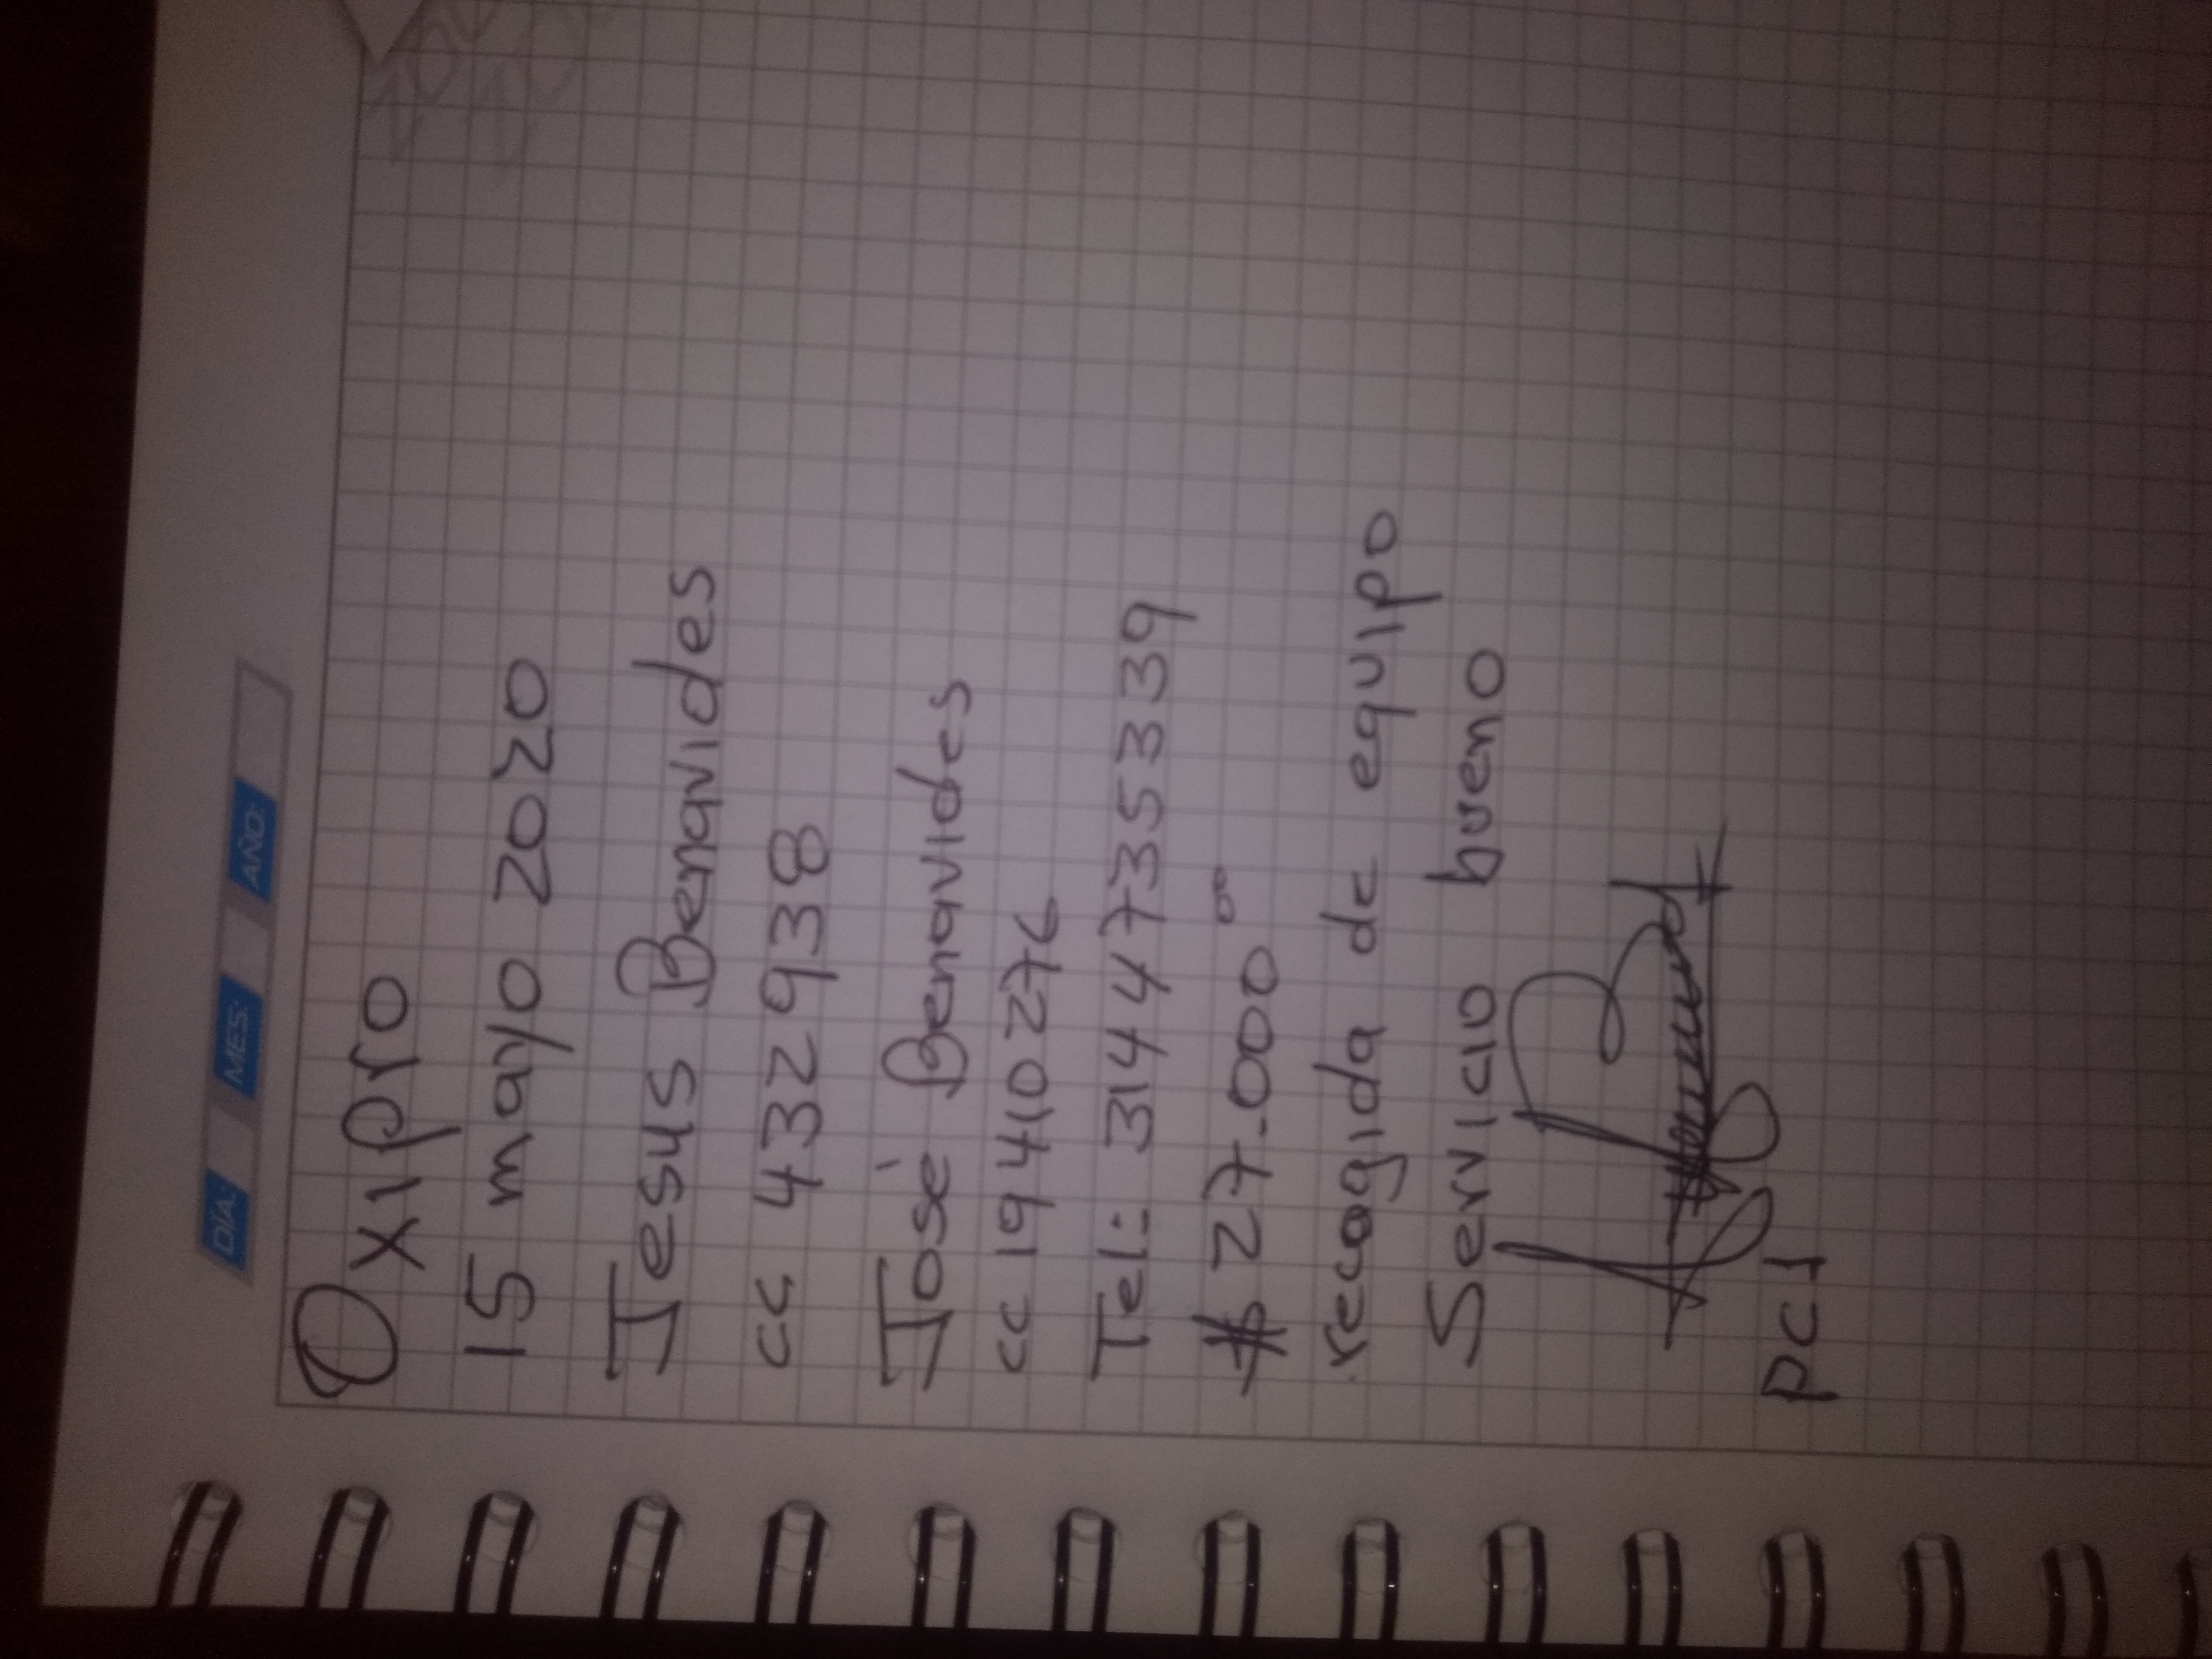 DÍA: MES: AÑO:
Oxipro
15 mayo 2020
Jesus Benavides
cc 432938
José Benavides
cc 19410276
Tel: 3144735339
$ 27.000 00
recogida de equipo
Servicio bueno
pc1